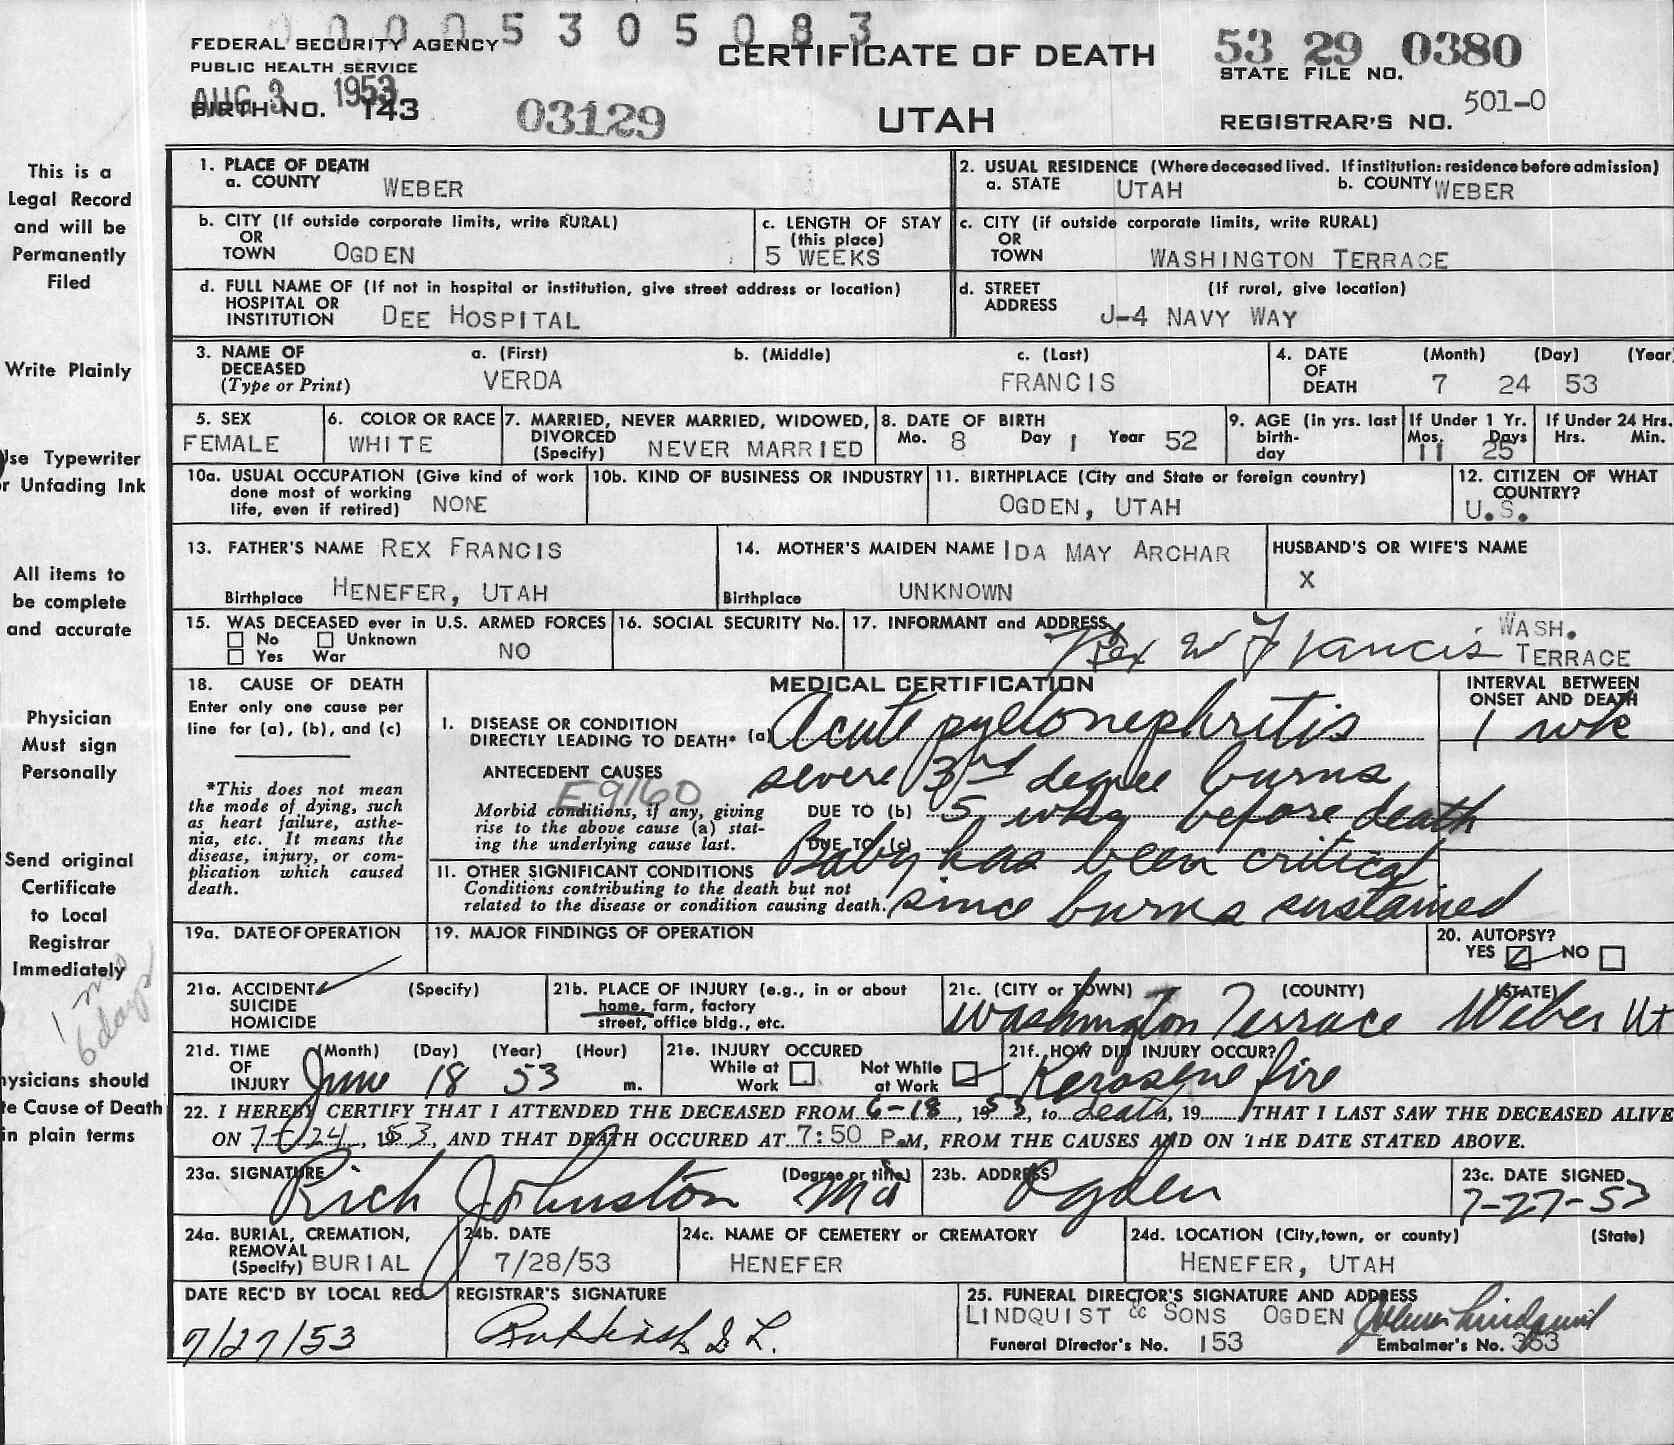 00005305083
FEDERAL SECURITY AGENCY
PUBLIC HEALTH SERVICE
AUG 3 1953
BIRTH NO. 143
03129
CERTIFICATE OF DEATH
UTAH
53 29 0380
STATE FILE NO.
501-0
REGISTRAR'S NO.
This is a
Legal Record
and will be
Permanently
Filed
Write Plainly
Use Typewriter
or Unfading Ink
All items to
be complete
and accurate
Physician
Must sign
Personally
Send original
Certificate
to Local
Registrar
Immediately
1 mo
6 days
Physicians should
te Cause of Death
in plain terms
1. PLACE OF DEATH
a. COUNTY WEBER
2. USUAL RESIDENCE (Where deceased lived. If institution: residence before admission)
a. STATE UTAH b. COUNTY WEBER
b. CITY (If outside corporate limits, write RURAL)
OR
TOWN OGDEN
c. LENGTH OF STAY
(this place)
5 WEEKS
c. CITY (if outside corporate limits, write RURAL)
OR
TOWN WASHINGTON TERRACE
d. FULL NAME OF (If not in hospital or institution, give street address or location)
HOSPITAL OR
INSTITUTION DEE HOSPITAL
d. STREET (If rural, give location)
ADDRESS J-4 NAVY WAY
3. NAME OF DECEASED (Type or Print)
a. (First) b. (Middle) c. (Last)
VERDA FRANCIS
4. DATE OF DEATH (Month) (Day) (Year
7 24 53
5. SEX
FEMALE
6. COLOR OR RACE
WHITE
7. MARRIED, NEVER MARRIED, WIDOWED,
DIVORCED
(Specify) NEVER MARRIED
8. DATE OF BIRTH
Mo. 8 Day 1 Year 52
9. AGE (in yrs. last
birth-
day
If Under 1 Yr.
Mos. Days
11 25
If Under 24 Hrs.
Hrs. Min.
10a. USUAL OCCUPATION (Give kind of work
done most of working
life, even if retired) NONE
10b. KIND OF BUSINESS OR INDUSTRY
11. BIRTHPLACE (City and State or foreign country)
OGDEN, UTAH
12. CITIZEN OF WHAT
COUNTRY?
U.S.
13. FATHER'S NAME REX FRANCIS
Birthplace HENEFER, UTAH
14. MOTHER'S MAIDEN NAME IDA MAY ARCHAR
Birthplace UNKNOWN
HUSBAND'S OR WIFE'S NAME
X
15. WAS DECEASED ever in U.S. ARMED FORCES
No Unknown
Yes War NO
16. SOCIAL SECURITY No.
17. INFORMANT and ADDRESS
Rex W Francis WASH.
TERRACE
18. CAUSE OF DEATH
Enter only one cause per
line for (a), (b), and (c)
*This does not mean
the mode of dying, such
as heart failure, asthe-
nia, etc. It means the
disease, injury, or com-
plication which caused
death.
MEDICAL CERTIFICATION
INTERVAL BETWEEN
ONSET AND DEATH
I. DISEASE OR CONDITION
DIRECTLY LEADING TO DEATH* (a) Acute pyelonephritis 1 wk
ANTECEDENT CAUSES severe 3rd degree burns
E9160
Morbid conditions, if any, giving
rise to the above cause (a) stat-
ing the underlying cause last.
DUE TO (b) 5 wks before death
DUE TO (c) Baby has been critical
II. OTHER SIGNIFICANT CONDITIONS
Conditions contributing to the death but not
related to the disease or condition causing death. since burns sustained
19a. DATE OF OPERATION
19. MAJOR FINDINGS OF OPERATION
20. AUTOPSY?
YES NO
21a. ACCIDENT (Specify)
SUICIDE
HOMICIDE
21b. PLACE OF INJURY (e.g., in or about
home, farm, factory
street, office bldg., etc.
21c. (CITY or TOWN) (COUNTY) (STATE)
Washington Terrace Weber Ut
21d. TIME (Month) (Day) (Year) (Hour)
OF
INJURY June 18 53 m.
21e. INJURY OCCURED
While at Work Not While at Work
21f. HOW DID INJURY OCCUR?
Kerosene fire
22. I HEREBY CERTIFY THAT I ATTENDED THE DECEASED FROM 6-18, 1953, to death, 19 THAT I LAST SAW THE DECEASED ALIVE
ON 7-24, 1953, AND THAT DEATH OCCURED AT 7:50 P.M, FROM THE CAUSES AND ON THE DATE STATED ABOVE.
23a. SIGNATURE (Degree or title)
Rich Johnston Md
23b. ADDRESS
Ogden
23c. DATE SIGNED
7-27-53
24a. BURIAL, CREMATION,
REMOVAL
(Specify) BURIAL
24b. DATE
7/28/53
24c. NAME OF CEMETERY or CREMATORY
HENEFER
24d. LOCATION (City, town, or county) (State)
HENEFER, UTAH
DATE REC'D BY LOCAL REG.
7/27/53
REGISTRAR'S SIGNATURE
25. FUNERAL DIRECTOR'S SIGNATURE AND ADDRESS
LINDQUIST & SONS OGDEN
Funeral Director's No. 153 Embalmer's No. 353